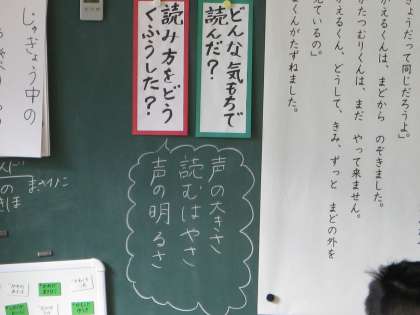 だって同じだろうよ。」
がえるくんは、まどから のぞきました。
かたつむりくんは、まだ やって来ません。
えるくん、どうして、きみ、ずっと まどの外を
ているの」
まくんがたずねました。
どんな気もちで
読んだ？
読み方をどう
くふうした？
声の大きさ
読むはやさ
声の明るさ
じゅぎょう中の